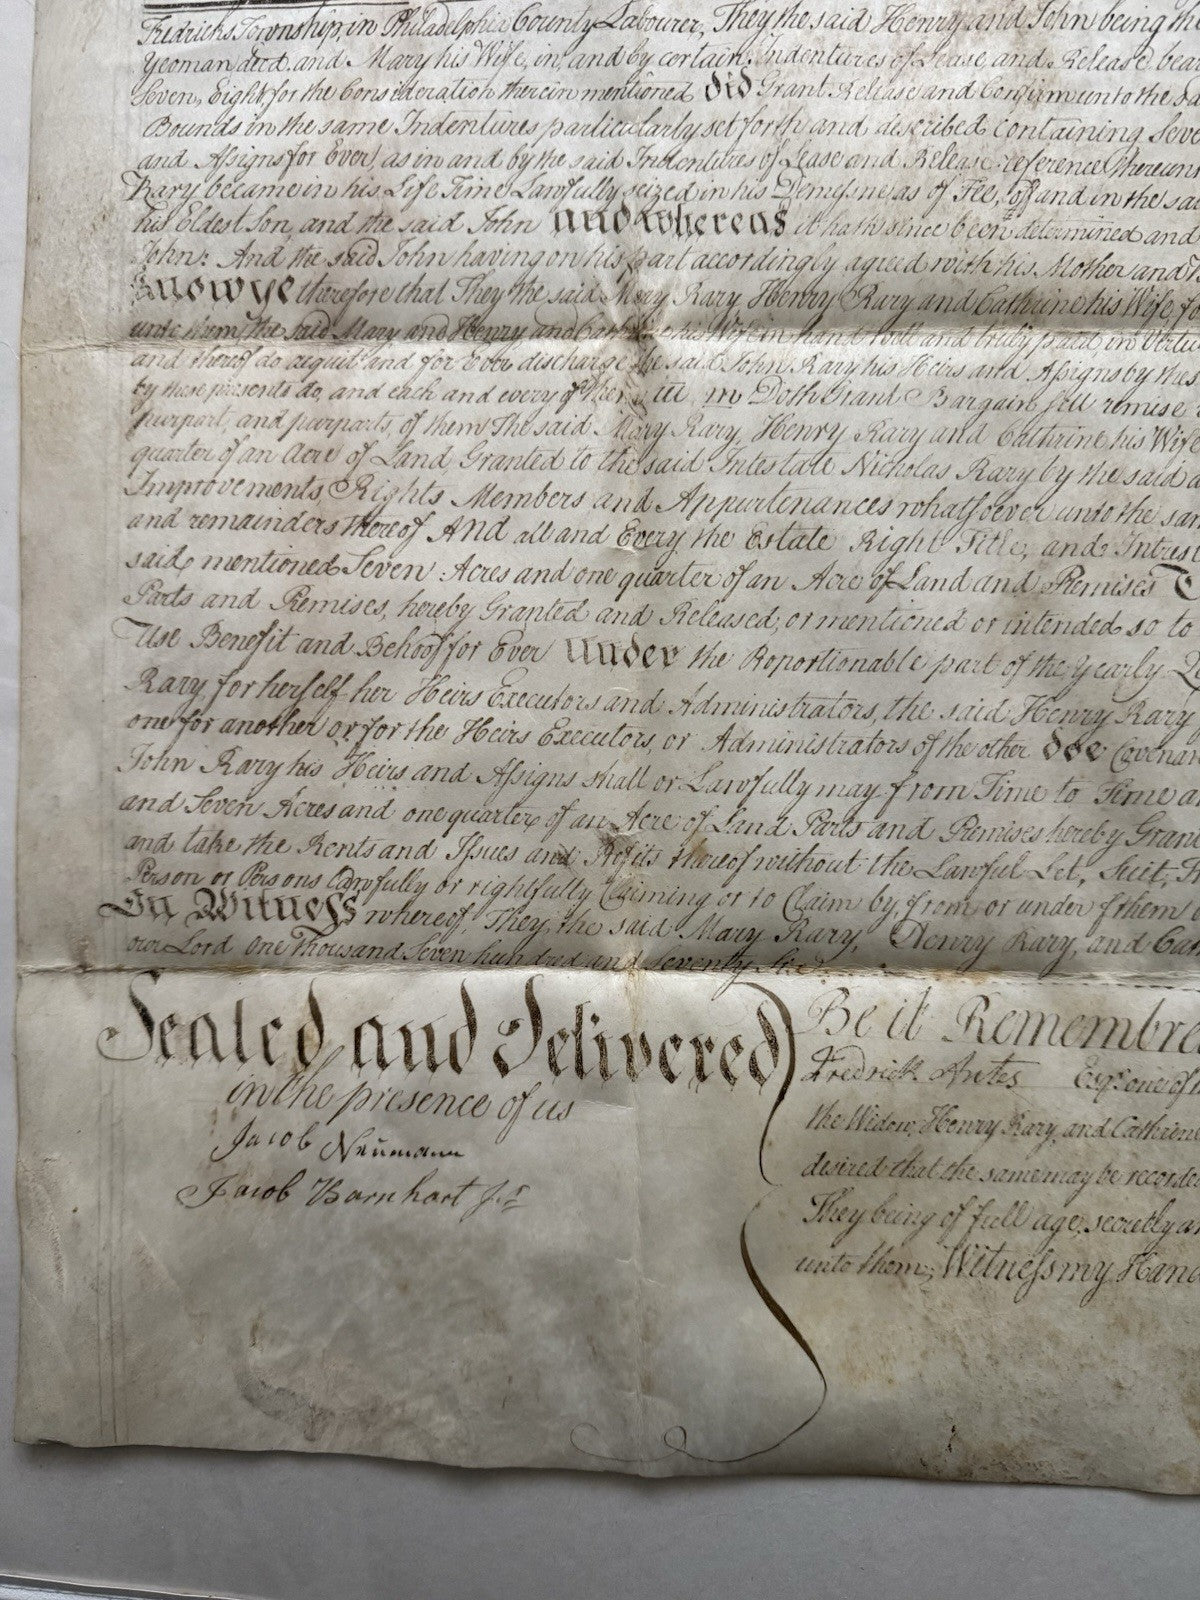 Fredricks Township, in Philadelphia County Labourer, They the said Henry and John being th
Yeoman decd. and Mary his Wife, in and by certain Indentures of Lease and Release bear
Seven, Eight, for the Consideration therein mentioned did Grant Release and Confirm unto the sa
Bounds in the same Indentures particularly set forth and described Containing Seve
and Assigns for Ever, as in and by the said Indentures of Lease and Release reference thereunt
Rary became in his Life Time Lawfully seized in his Demesne, as of Fee, of and in the said
his Eldest Son, and the said John and whereas it hath since been determined and
John: And the said John having on his part accordingly agreed with his Mother and
Know ye therefore that They the said Mary Rary Henry Rary and Cathrine his Wife, fo
unto them, the said Mary and Henry and Cathrine his Wife in hand well and truly paid, in Virtue
and thereof do acquit and for Ever discharge the said John Rary his Heirs and Assigns by these
by these presents do, and each and every of them Doth Grant Bargain sell remise
purport, and purparts, of them The said Mary Rary, Henry Rary and Cathrine his Wife
quarter of an Acre of Land Granted to the said Intestate Nicholas Rary by the said
Improvements, Rights Members and Appurtenances whatsoever unto the sam
and remainders thereof And all and Every the Estate Right Title, and Intrest
said, mentioned Seven Acres and one quarter of an Acre of Land and Premises T
Parts and Premises, hereby Granted and Released, or mentioned or intended so to
Use Benefit and Behoof for Ever under the Proportionable part of the yearly
Rary, for herself her Heirs Executors and Administrators, the said Henry Rary
one for another or for the Heirs Executors, or Administrators of the other doe Covenan
John Rary his Heirs and Assigns shall or Lawfully may from Time to Time a
and Seven Acres and one quarter of an Acre of Land Parts and Premises hereby Grant
and take the Rents and Issues and Profits thereof without the Lawful Let, Suit, Tr
Person or Persons Lawfully or rightfully Claiming or to Claim by, from or under them
In Witness whereof, They, the said Mary Rary, Henry Rary, and Cat
our Lord One Thousand Seven hundred and Seventy Six
Sealed and Delivered
in the presence of us
Jacob Neumann
Jacob Barnhart Jr
Be it Remembre
Fredrick Antes Esqr one of
the Widow, Henry Rary, and Cathrine
desired that the same may be recorded
They being of full age, secretly a
unto them; Witness my Hand